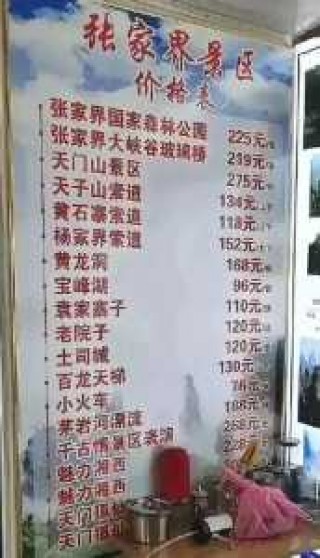 张家界景区
价格表
张家界国家森林公园 225元
张家界大峡谷玻璃桥 219元
天门山景区 275元
天子山索道 134元
黄石寨索道 118元
杨家界索道 152元
黄龙洞 168元
宝峰湖 96元
袁家寨子 110元
老院子 120元
土司城 120元
百龙天梯 130元
小火车 76元
茅岩河漂流
千古情景区表演
魅力湘西
魅力湘西
天门
天门